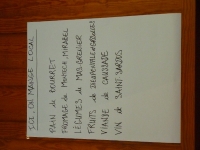 SCL DU MANGER LOCAL
PAIN de BOURRET
FROMAGE de MONTECH, MIRABEL
LÉGUMES de MAS-GRENIER
FRUITS de
VIANDE de CAUSSADE
VIN de SAINT-SARDOS